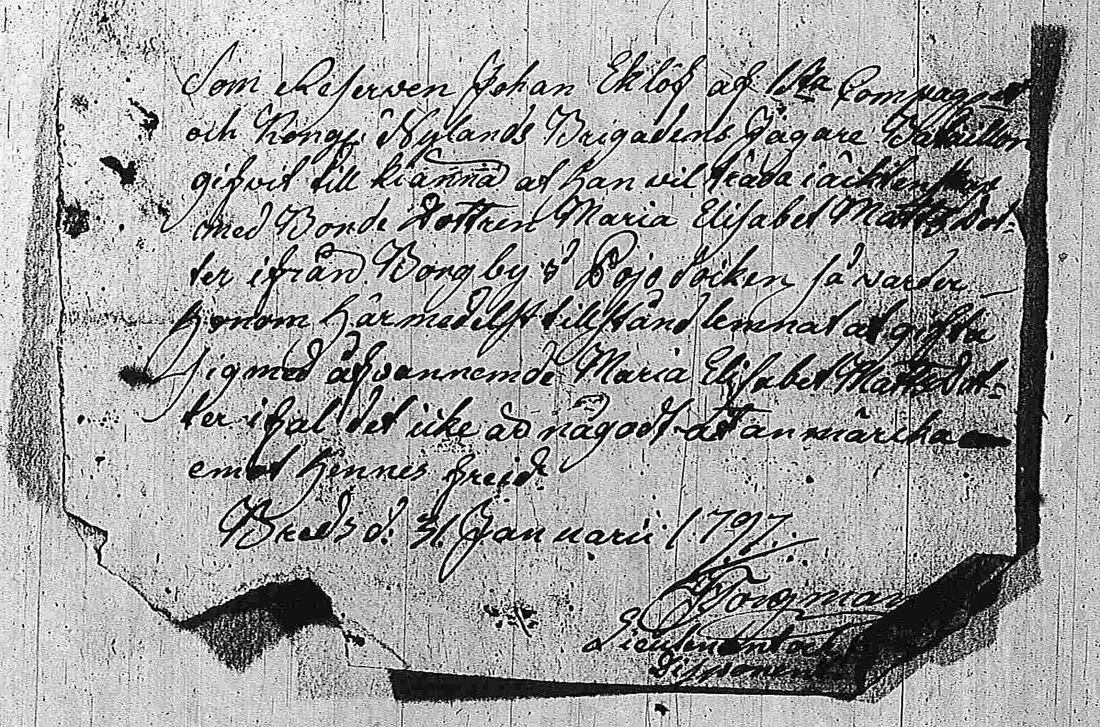 Som Reserven Johan Eklöf af 1sta Compagniet
och Kongl. Nylands Brigadens Jägare Bataillon
gifvit till kiänna at han vil träda i ächtenskap
med Bonde Dottren Maria Elisabet Matts Dot-
ter ifrån Borgby i Pojo Soiken så varder
honom härmedelst tillstånd lemnat at gifta
sig med åfvannemde Maria Elisabet Matts Dot-
ter ifal det icke är någodt at anmärcka
emot hennes freid.
Breds d. 31. Januarii 1797.
Borgman
Lieutenant och